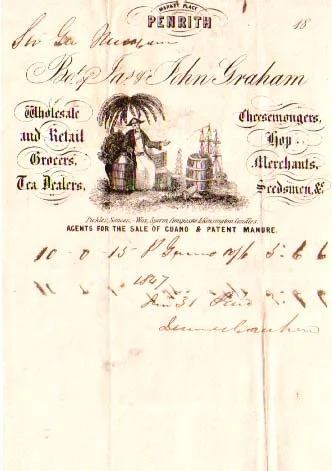 MARKET PLACE
PENRITH
18
Sir Geo
Bot of Jas & John Graham
Wholesale
and Retail
Grocers.
Tea Dealers,
Cheesemongers.
Hop
Merchants.
Seedsmen, &c
Pickles, Sauces, Wax, Sperm, Composite & Kensington Candles.
AGENTS FOR THE SALE OF GUANO & PATENT MANURE.
10 - 0 - 15 Guano 10/6 5 : 6 6
1847
31 Paid